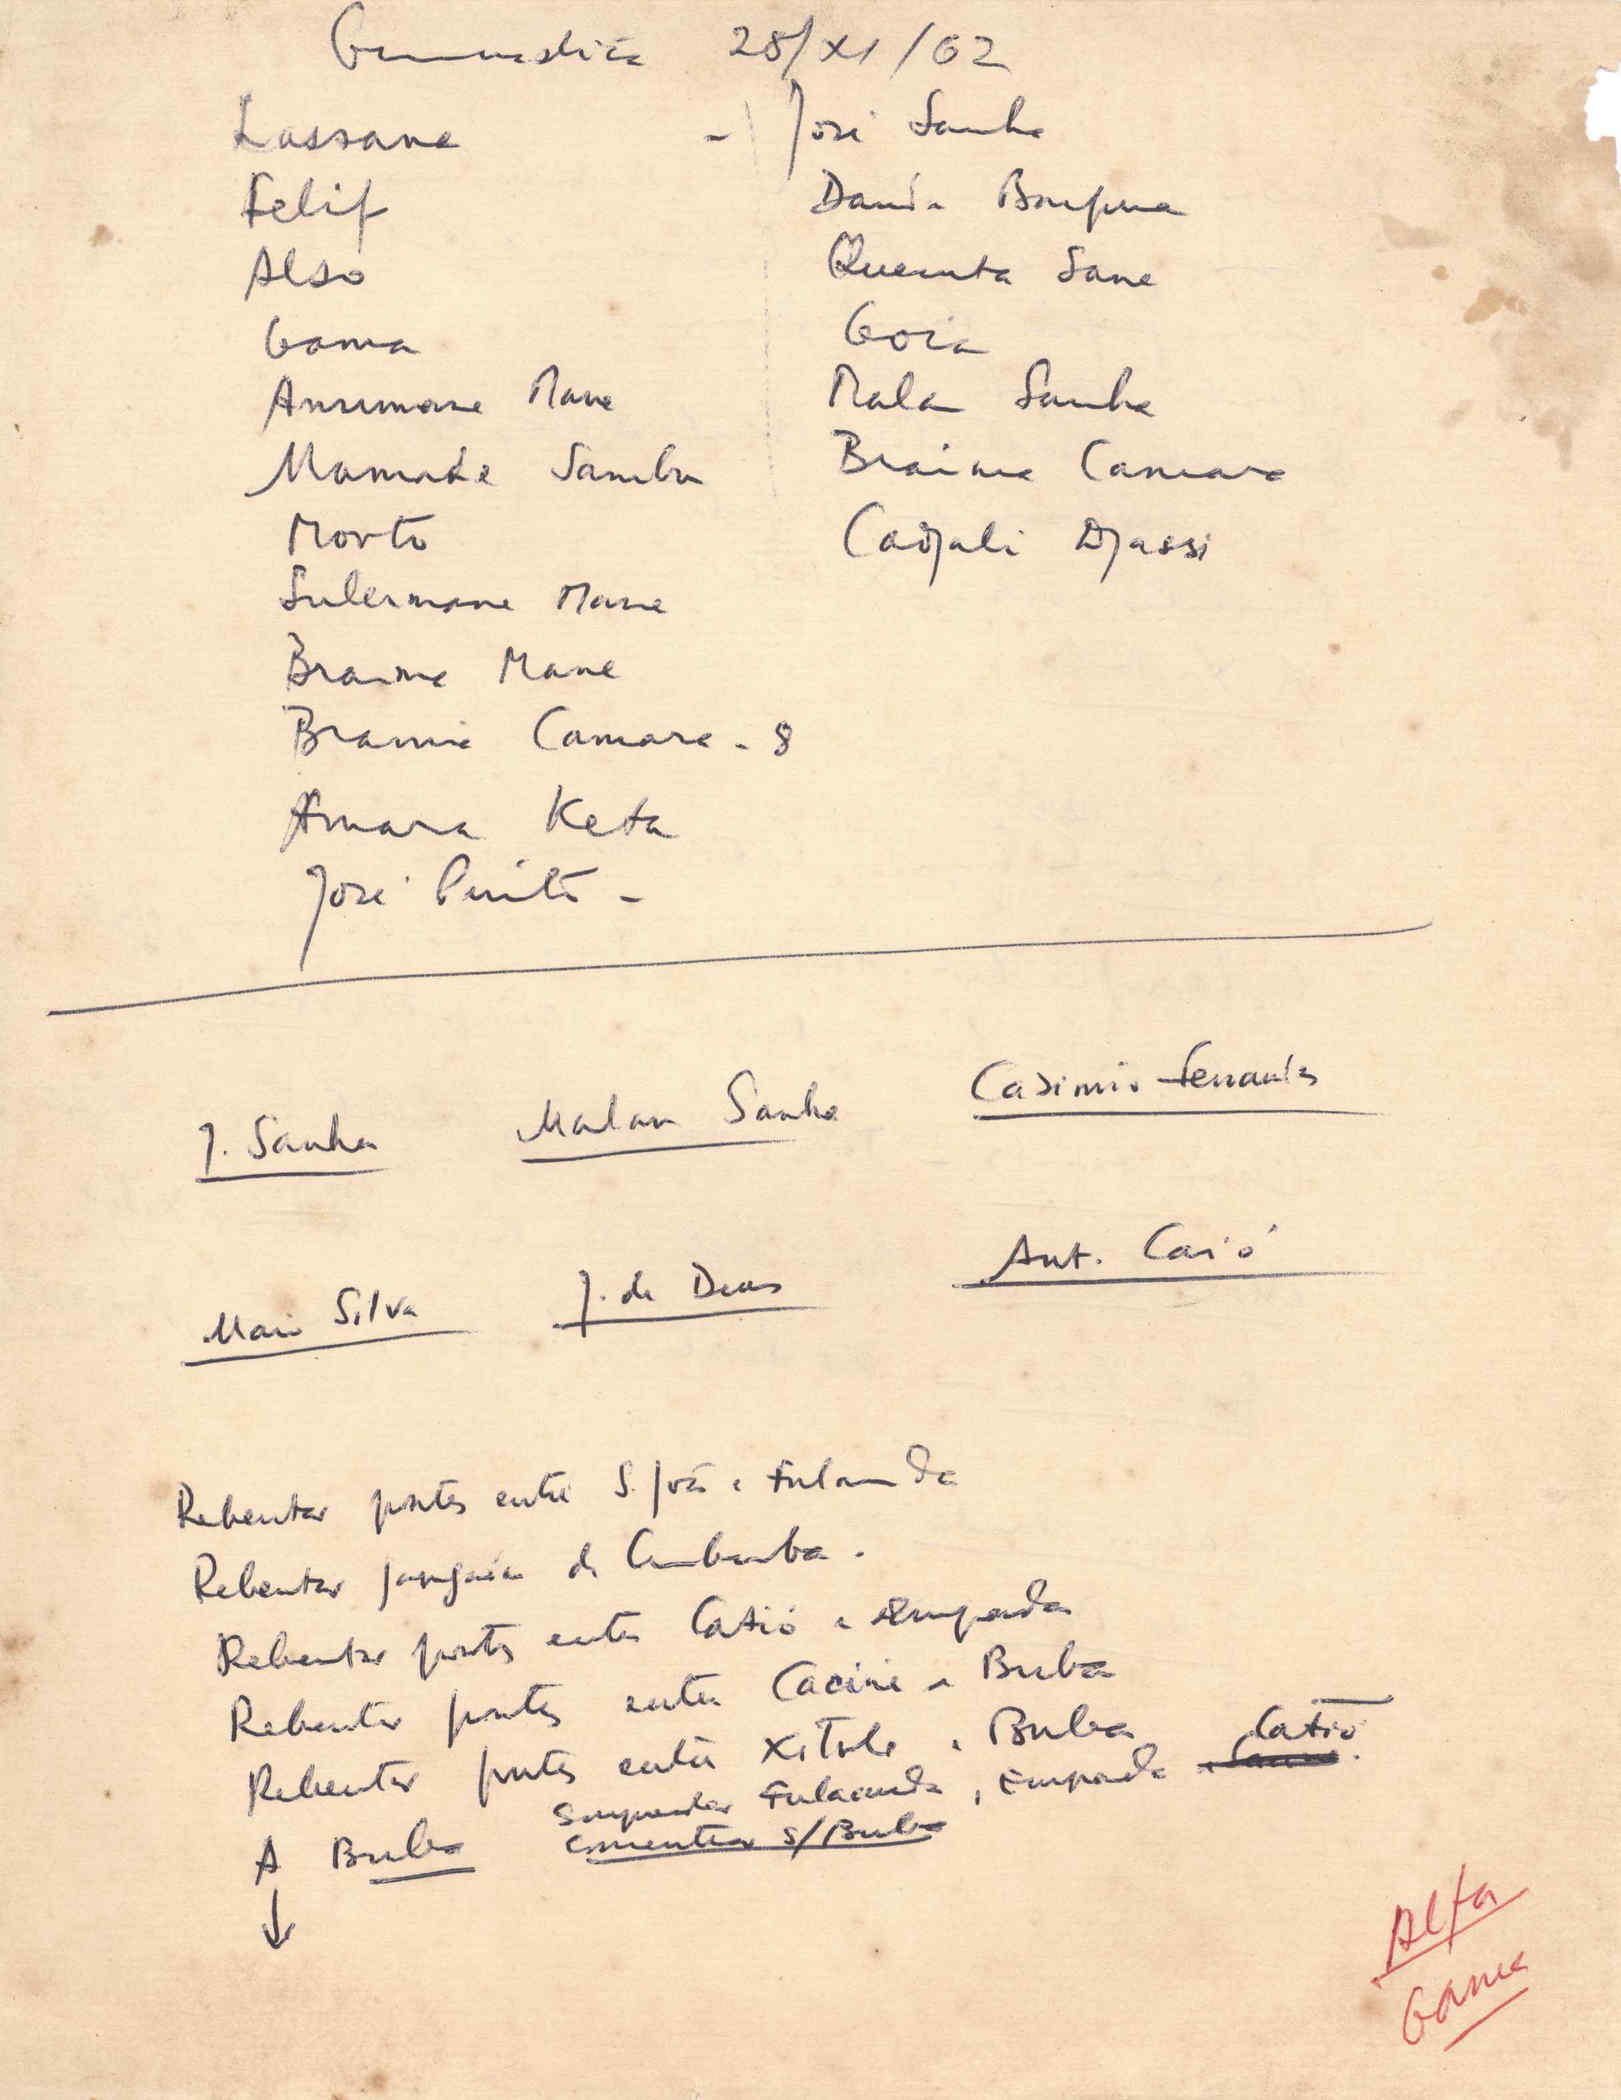 28/XI/62
Lassana
Felif
Also
Gama
Ansumane Mane
Mamade Sambu
Morto
Suleimane Mane
Braima Mane
Braima Camara - 8
Amara Keta
José
- José Sanha
Dauda
Quecuta Sane
Goia
Malan Sanha
Braima Camara
Cadjali Djassi
J. Sanha Malan Sanha Casimiro Fernandes
Mario Silva J. de Deus Ant. Caió
Rebentar pontes entre S. João e Fulacunda
Rebentar jangada de
Rebentar pontes entre Catió e Empada
Rebentar pontes entre Cacine e Buba
Rebentar pontes entre Xitole e Buba
Fulacunda, Empada Catió
A Buba s/Buba
Alfa
Gama